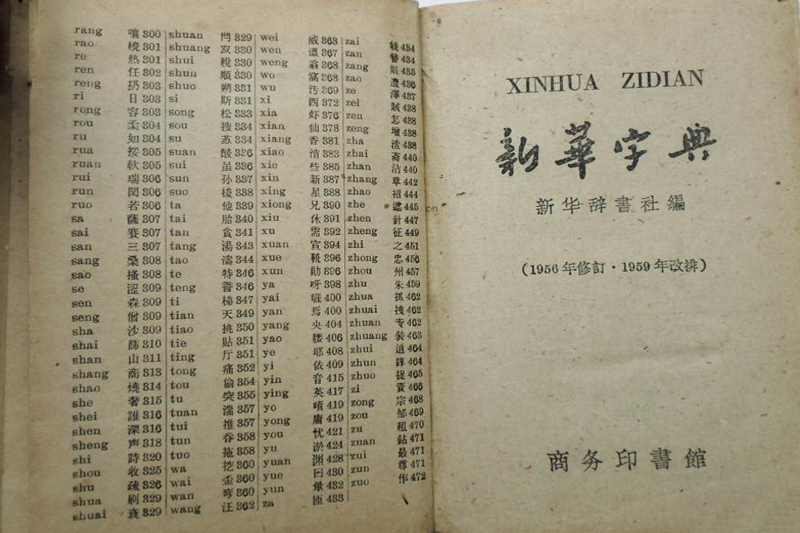 rang 嚷 300
rao 301
re 热 301
ren 任 302
reng 扔 303
ri 日 303
rong 容 303
rou 柔 304
ru 如 304
rua 挼 305
ruan 軟 305
rui 瑞 306
run 閏 306
ruo 若 306
sa 薩 307
sai 賽 307
san 三 307
sang 桑 308
sao 搔 308
se 澀 309
sen 森 309
seng 僧 309
sha 沙 309
shai 篩 310
shan 山 311
shang 商 313
shao 燒 314
she 奢 315
shei 誰 316
shen 深 316
sheng 声 318
shi 詩 320
shou 收 325
shu 疏 326
shua 刷 329
shuai 衰 329
shuan 閂 329
shuang 双 330
shui 稅 330
shun 順 330
shuo 朔 331
si 斯 331
song 松 333
sou 搜 334
su 苏 334
suan 酸 336
sui 虽 336
sun 孙 337
suo 梭 338
ta 他 339
tai 胎 340
tan 貪 341
tang 湯 343
tao 濤 344
te 特 346
teng 346
ti 梯 347
tian 天 349
tiao 挑 350
tie 貼 351
ting 厅 351
tong 352
tou 偷 354
tu 突 355
tuan 湍 357
tui 推 357
tun 吞 358
tuo 拖 358
wa 挖 360
wai 歪 360
wan 弯 360
wang 汪 362
wei 威 363
wen 溫 367
weng 翁 368
wo 窩 368
wu 污 369
xi 西 372
xia 虾 376
xian 仙 378
xiang 香 381
xiao 消 383
xie 些 385
xin 新 387
xing 星 388
xiong 兄 390
xiu 休 391
xu 需 392
xuan 宣 394
xue 靴 396
xun 勛 396
ya 呀 398
yai 400
yan 焉 400
yang 央 404
yao 腰 406
ye 耶 408
yi 依 409
yin 音 415
ying 英 417
yo 唷 419
yong 庸 419
you 忧 421
yu 淤 424
yuan 渊 428
yue 曰 430
yun 暈 432
za 匝 433
zai 栽 434
zan 簪 434
zang 435
zao 遭 436
ze 澤 437
zei 賊 438
zen 怎 438
zeng 增 438
zha 渣 438
zhai 斋 440
zhan 沾 440
zhang 章 442
zhao 招 444
zhe 遮 445
zhen 針 447
zheng 征 449
zhi 之 451
zhong 忠 456
zhou 州 457
zhu 朱 459
zhua 抓 462
zhuai 拽 462
zhuan 专 462
zhuang 装 463
zhui 追 464
zhun 諄 464
zhuo 捉 465
zi 資 466
zong 宗 468
zou 邹 469
zu 租 470
zuan 鉆 471
zui 最 471
zun 尊 471
zuo 作 472
XINHUA ZIDIAN
新華字典
新华辞書社編
(1956年修訂·1959年改排)
商务印書館